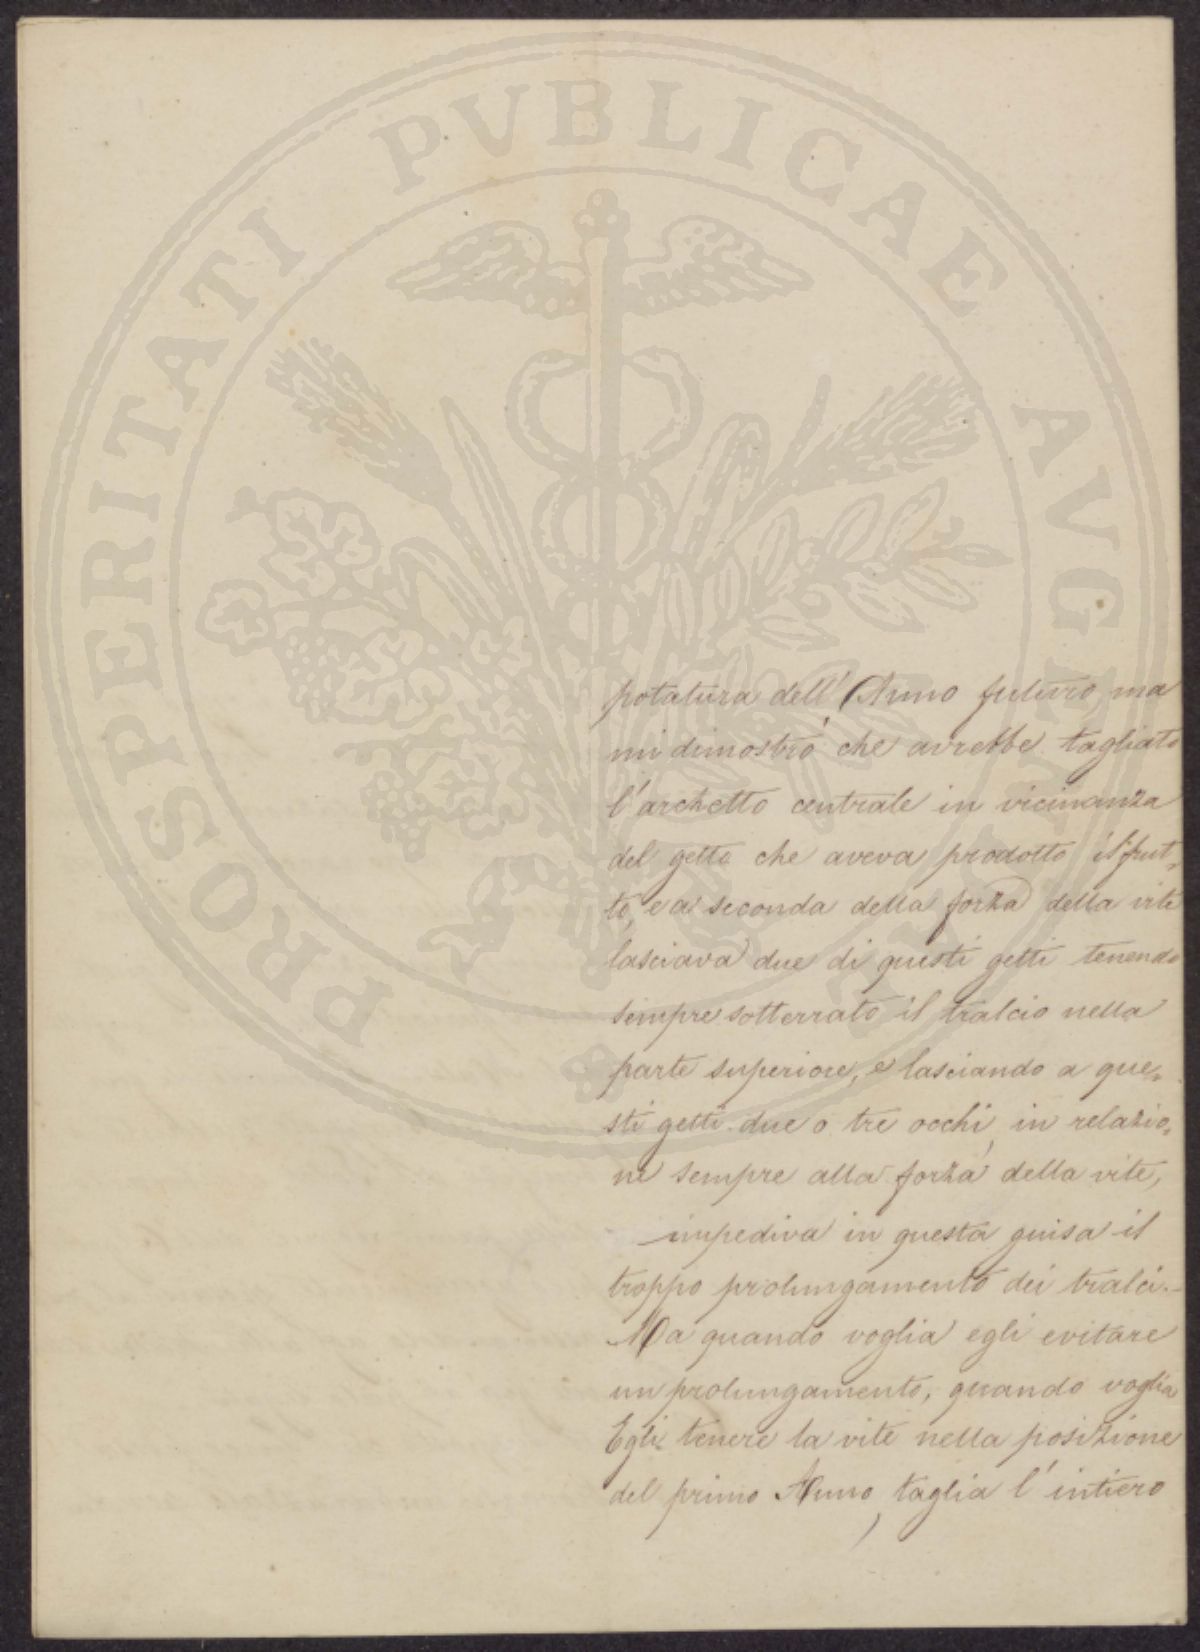 PROSPERITATI PUBLICAE AUGENDAE
potatura dell' Anno futuro, ma
mi dimostrò che avrebbe tagliato
l'archetto centrale in vicinanza
del getto che aveva prodotto il frut„
to, e a seconda della forza della vite
lasciava due di questi getti tenendo
sempre sotterrato il tralcio nella
parte superiore, e lasciando a que„
sti getti due o tre occhi, in relazio„
ne sempre alla forza della vite,
impediva in questa guisa il
troppo prolungamento dei tralci.–
Ma quando voglia egli evitare
un prolungamento, quando voglia
Egli tenere la vite nella posizione
del primo Anno, taglia l' intiero